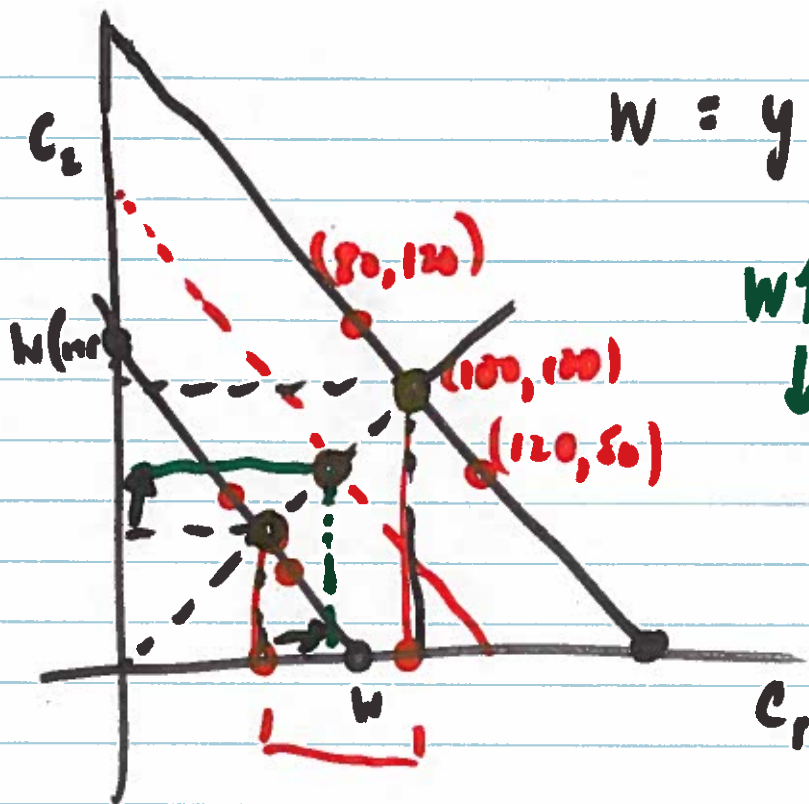 C₂
W = y
(80,120)
W↑
W(
(100,100)
↓
(120,80)
W
C₁